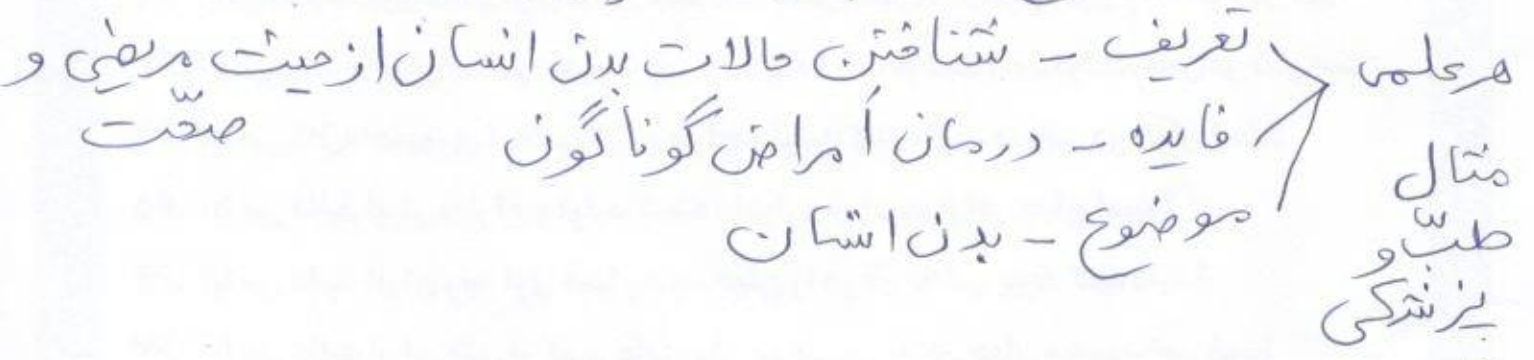 هر علمی
مثال
طبّ و
پزشکی
تعریف - شناختن حالات بدن انسان از حیث مریضی و
صحّت
فایده - درمان أمراض گوناگون
موضوع - بدن انسان